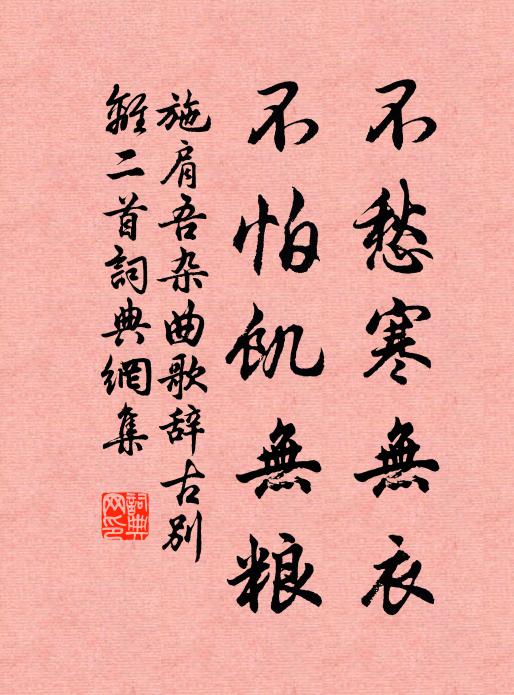 不愁寒無衣
不怕飢無粮
施肩吾杂曲歌辞古别
離二首詞典網集
詞典
网印